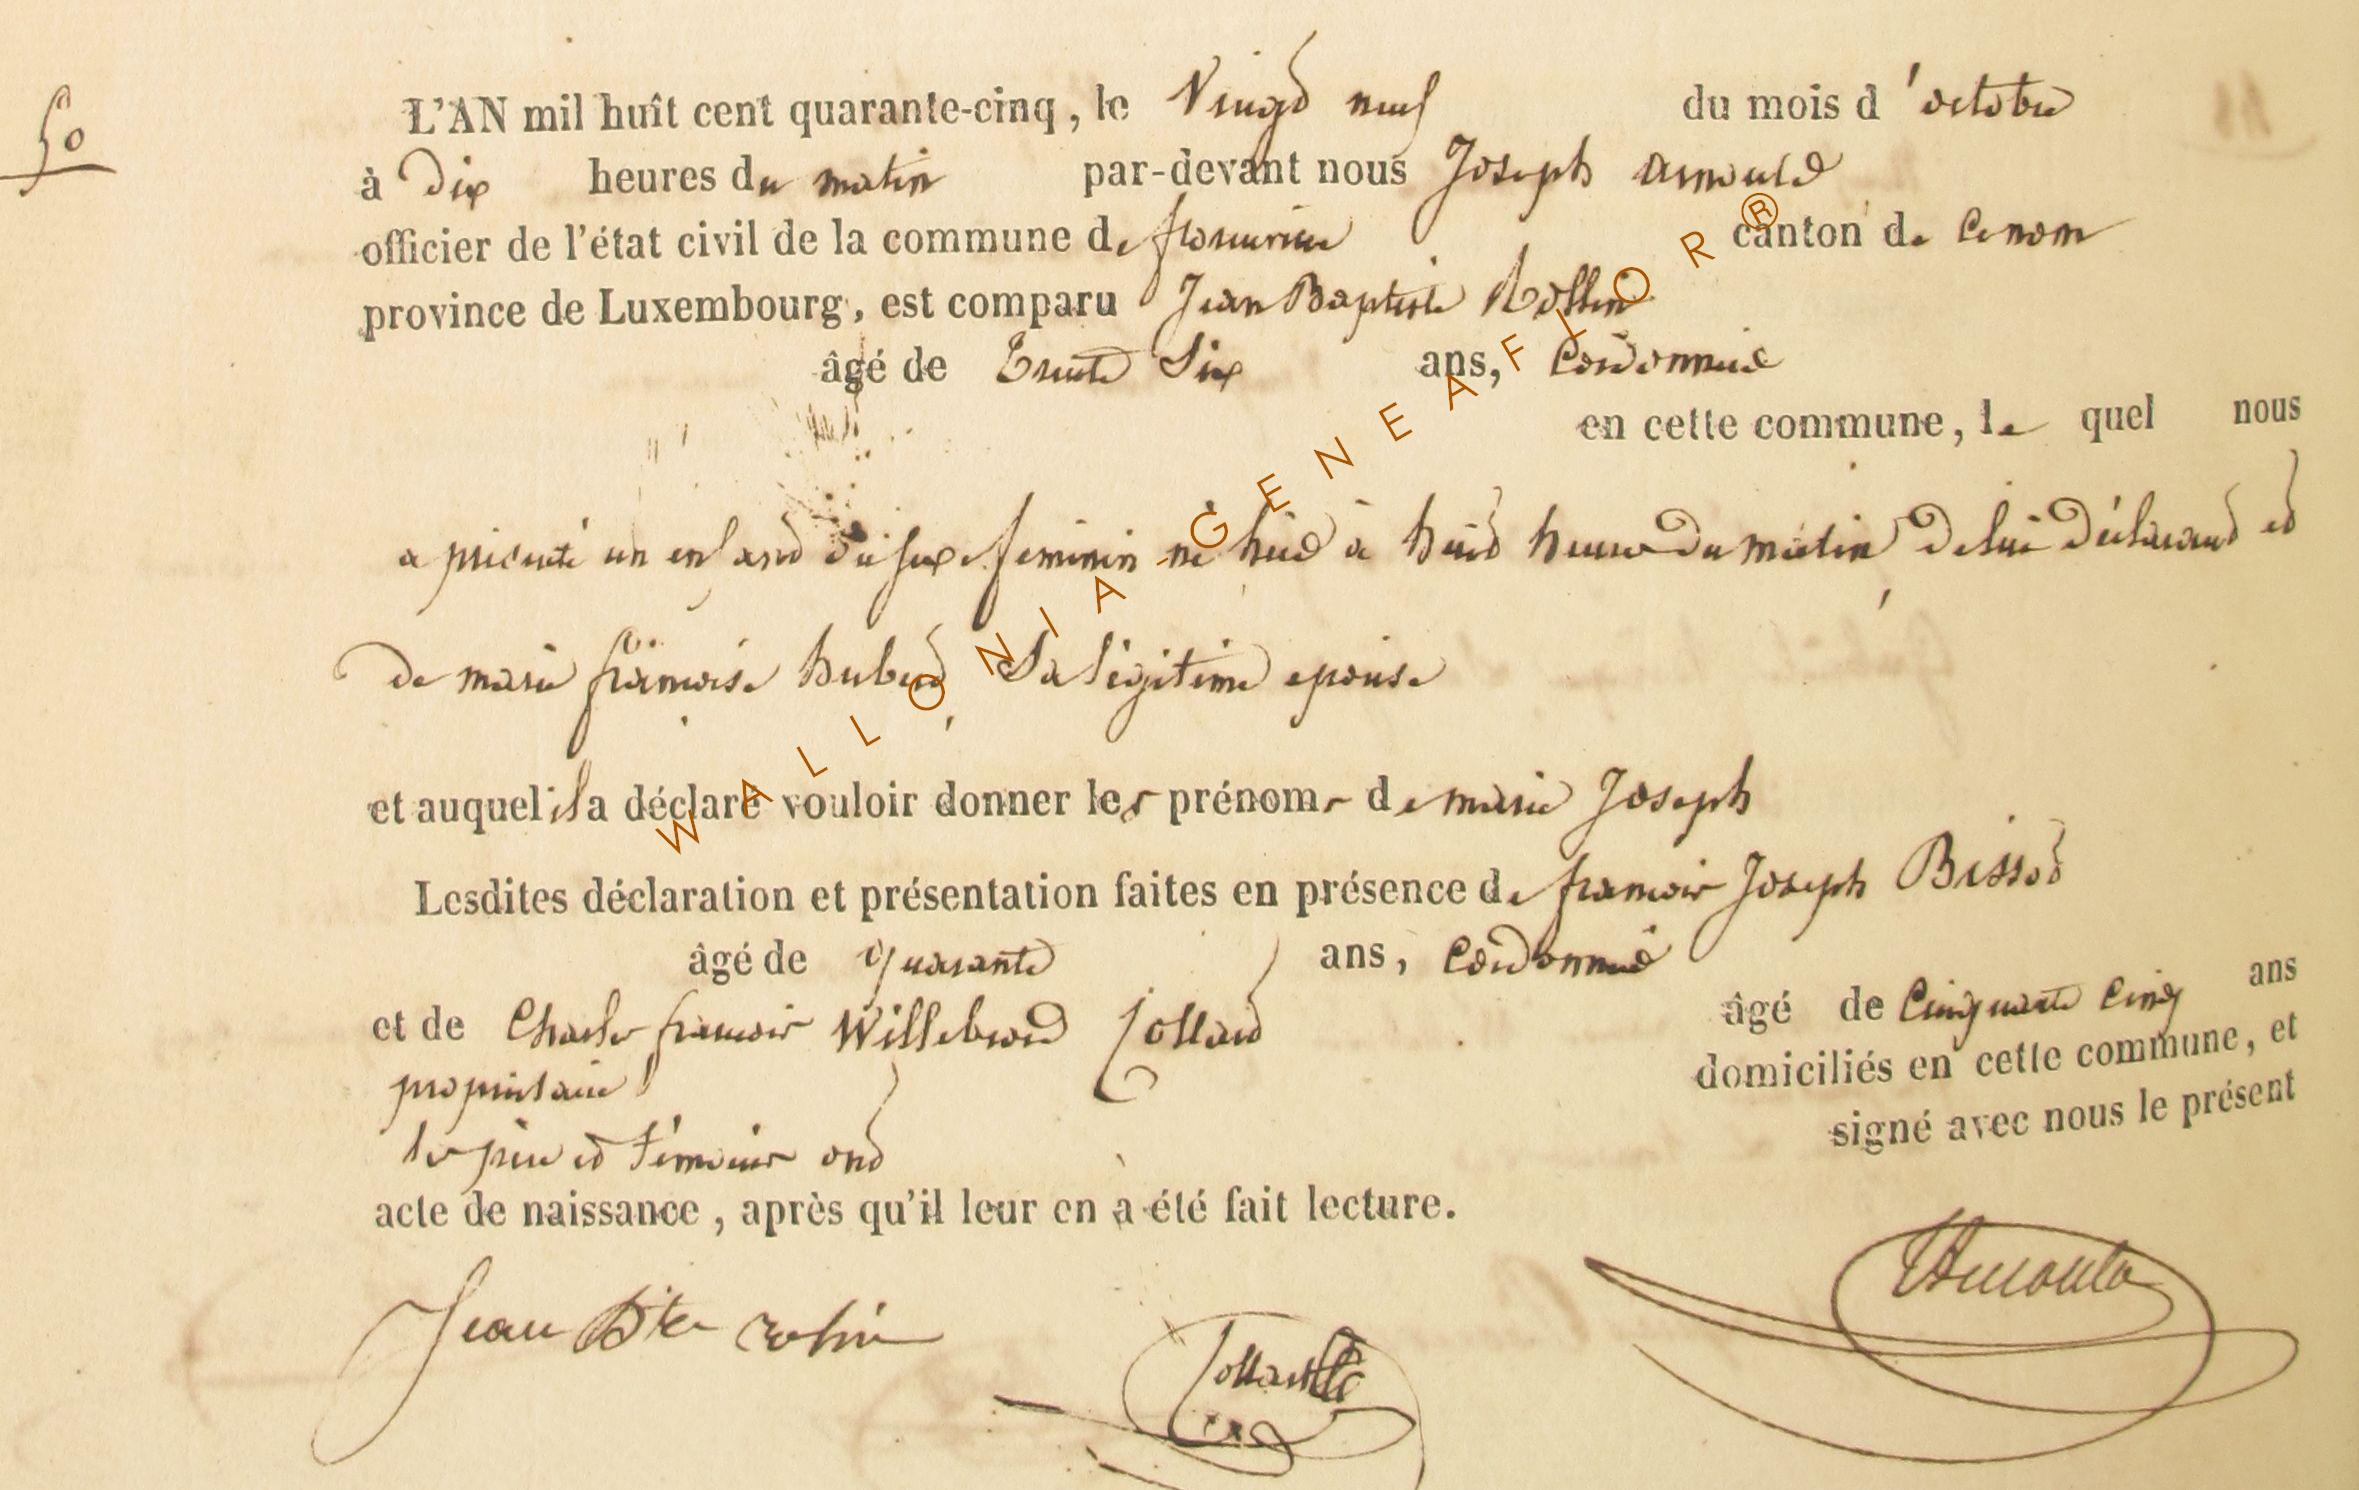 50
L'AN mil huit cent quarante-cinq, le Vingt neuf du mois d'octobre
à Dix heures du matin par-devant nous Joseph arnould
officier de l'état civil de la commune de canton de
province de Luxembourg, est comparu Jean Baptiste Rollin
âgé de Trente Six ans, Cordonnier
en cette commune, le quel nous
a présenté un enfant du sexe feminin né hier à huit heures du matin de lui déclarant et
de marie françoise hubert Sa légitime epouse
et auquel il a déclaré vouloir donner les prénoms de marie Joseph
Lesdites déclaration et présentation faites en présence de francois Joseph Bissot
âgé de quarante ans, Cordonnier
et de Charles francois Willebrord Collard âgé de Cinquante Cinq ans
propriétaire domiciliés en cette commune, et
les père et témoins ont signé avec nous le présent
acte de naissance, après qu'il leur en a été fait lecture.
Jean Bte rolin
WALLONIA-GENEAFLOR®